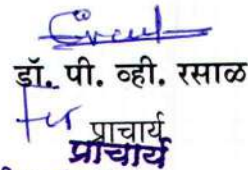 डॉ. पी. व्ही. रसाळ
प्राचार्य
प्राचार्य